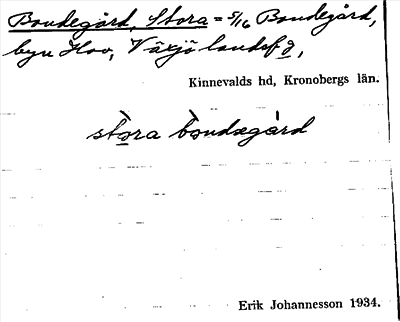 Bondegård, Stora = 5/16 Bondegård,
byn Hov, Växjö landsfg,
Kinnevalds hd, Kronobergs län.
stòra bòndægàrd
Erik Johannesson 1934.